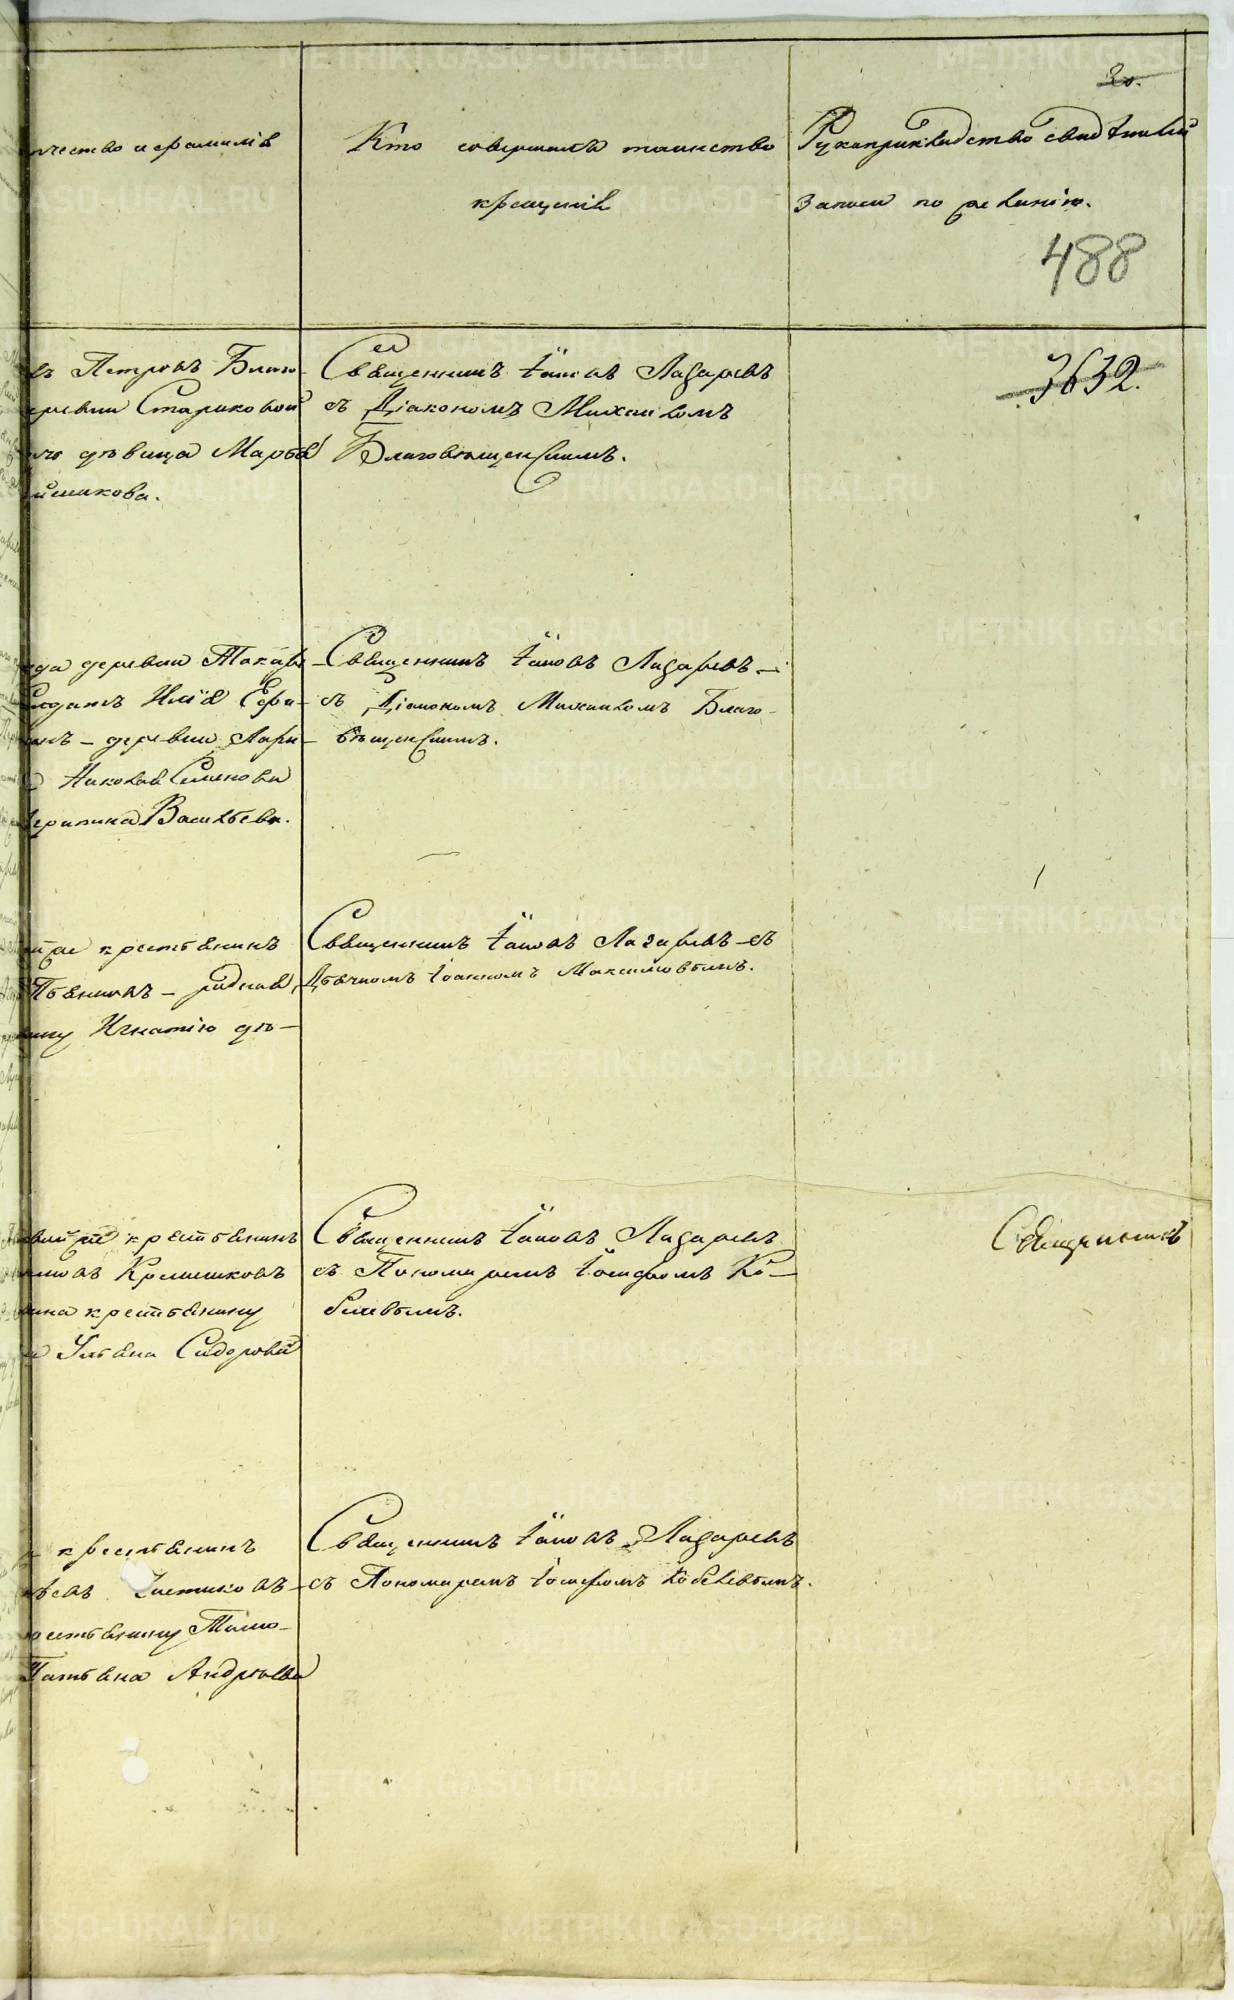 30.
чество и фамилія
Кто совершалъ таинство
крещенія
Рукоприкладство свидѣтелей
записи по желанію.
488
3632.
въ Петровъ Благо-
деревни Стариковой
дѣвица Марѳа
Священникъ Іаковъ Лазаревъ
съ Діакономъ Михаиломъ
Благовѣщенскимъ.
деревни Токаре-
Солдатъ Илія Ефи-
деревни Лари-
Николая Семенова
Васильева.
Священникъ Іаковъ Лазаревъ
съ Діакономъ Михаиломъ Благо-
вѣщенскимъ.
крестьянинъ
Пьянковъ – родная
Игнатію дѣ-
Священникъ Іаковъ Лазаревъ съ
Дьячкомъ Іоанномъ Максимовымъ.
крестьянинъ
Клешниковъ
крестьянину
Ульяна Сидорова
Священникъ Іаковъ Лазаревъ
съ Пономаремъ Іосифомъ Ко-
белевымъ.
Священникъ
крестьянинъ
Чистяковъ
Татьяна Андреева
Священникъ Іаковъ Лазаревъ
съ Пономаремъ Іосифомъ Кобелевымъ.
METRIKI.GASO-URAL.RU